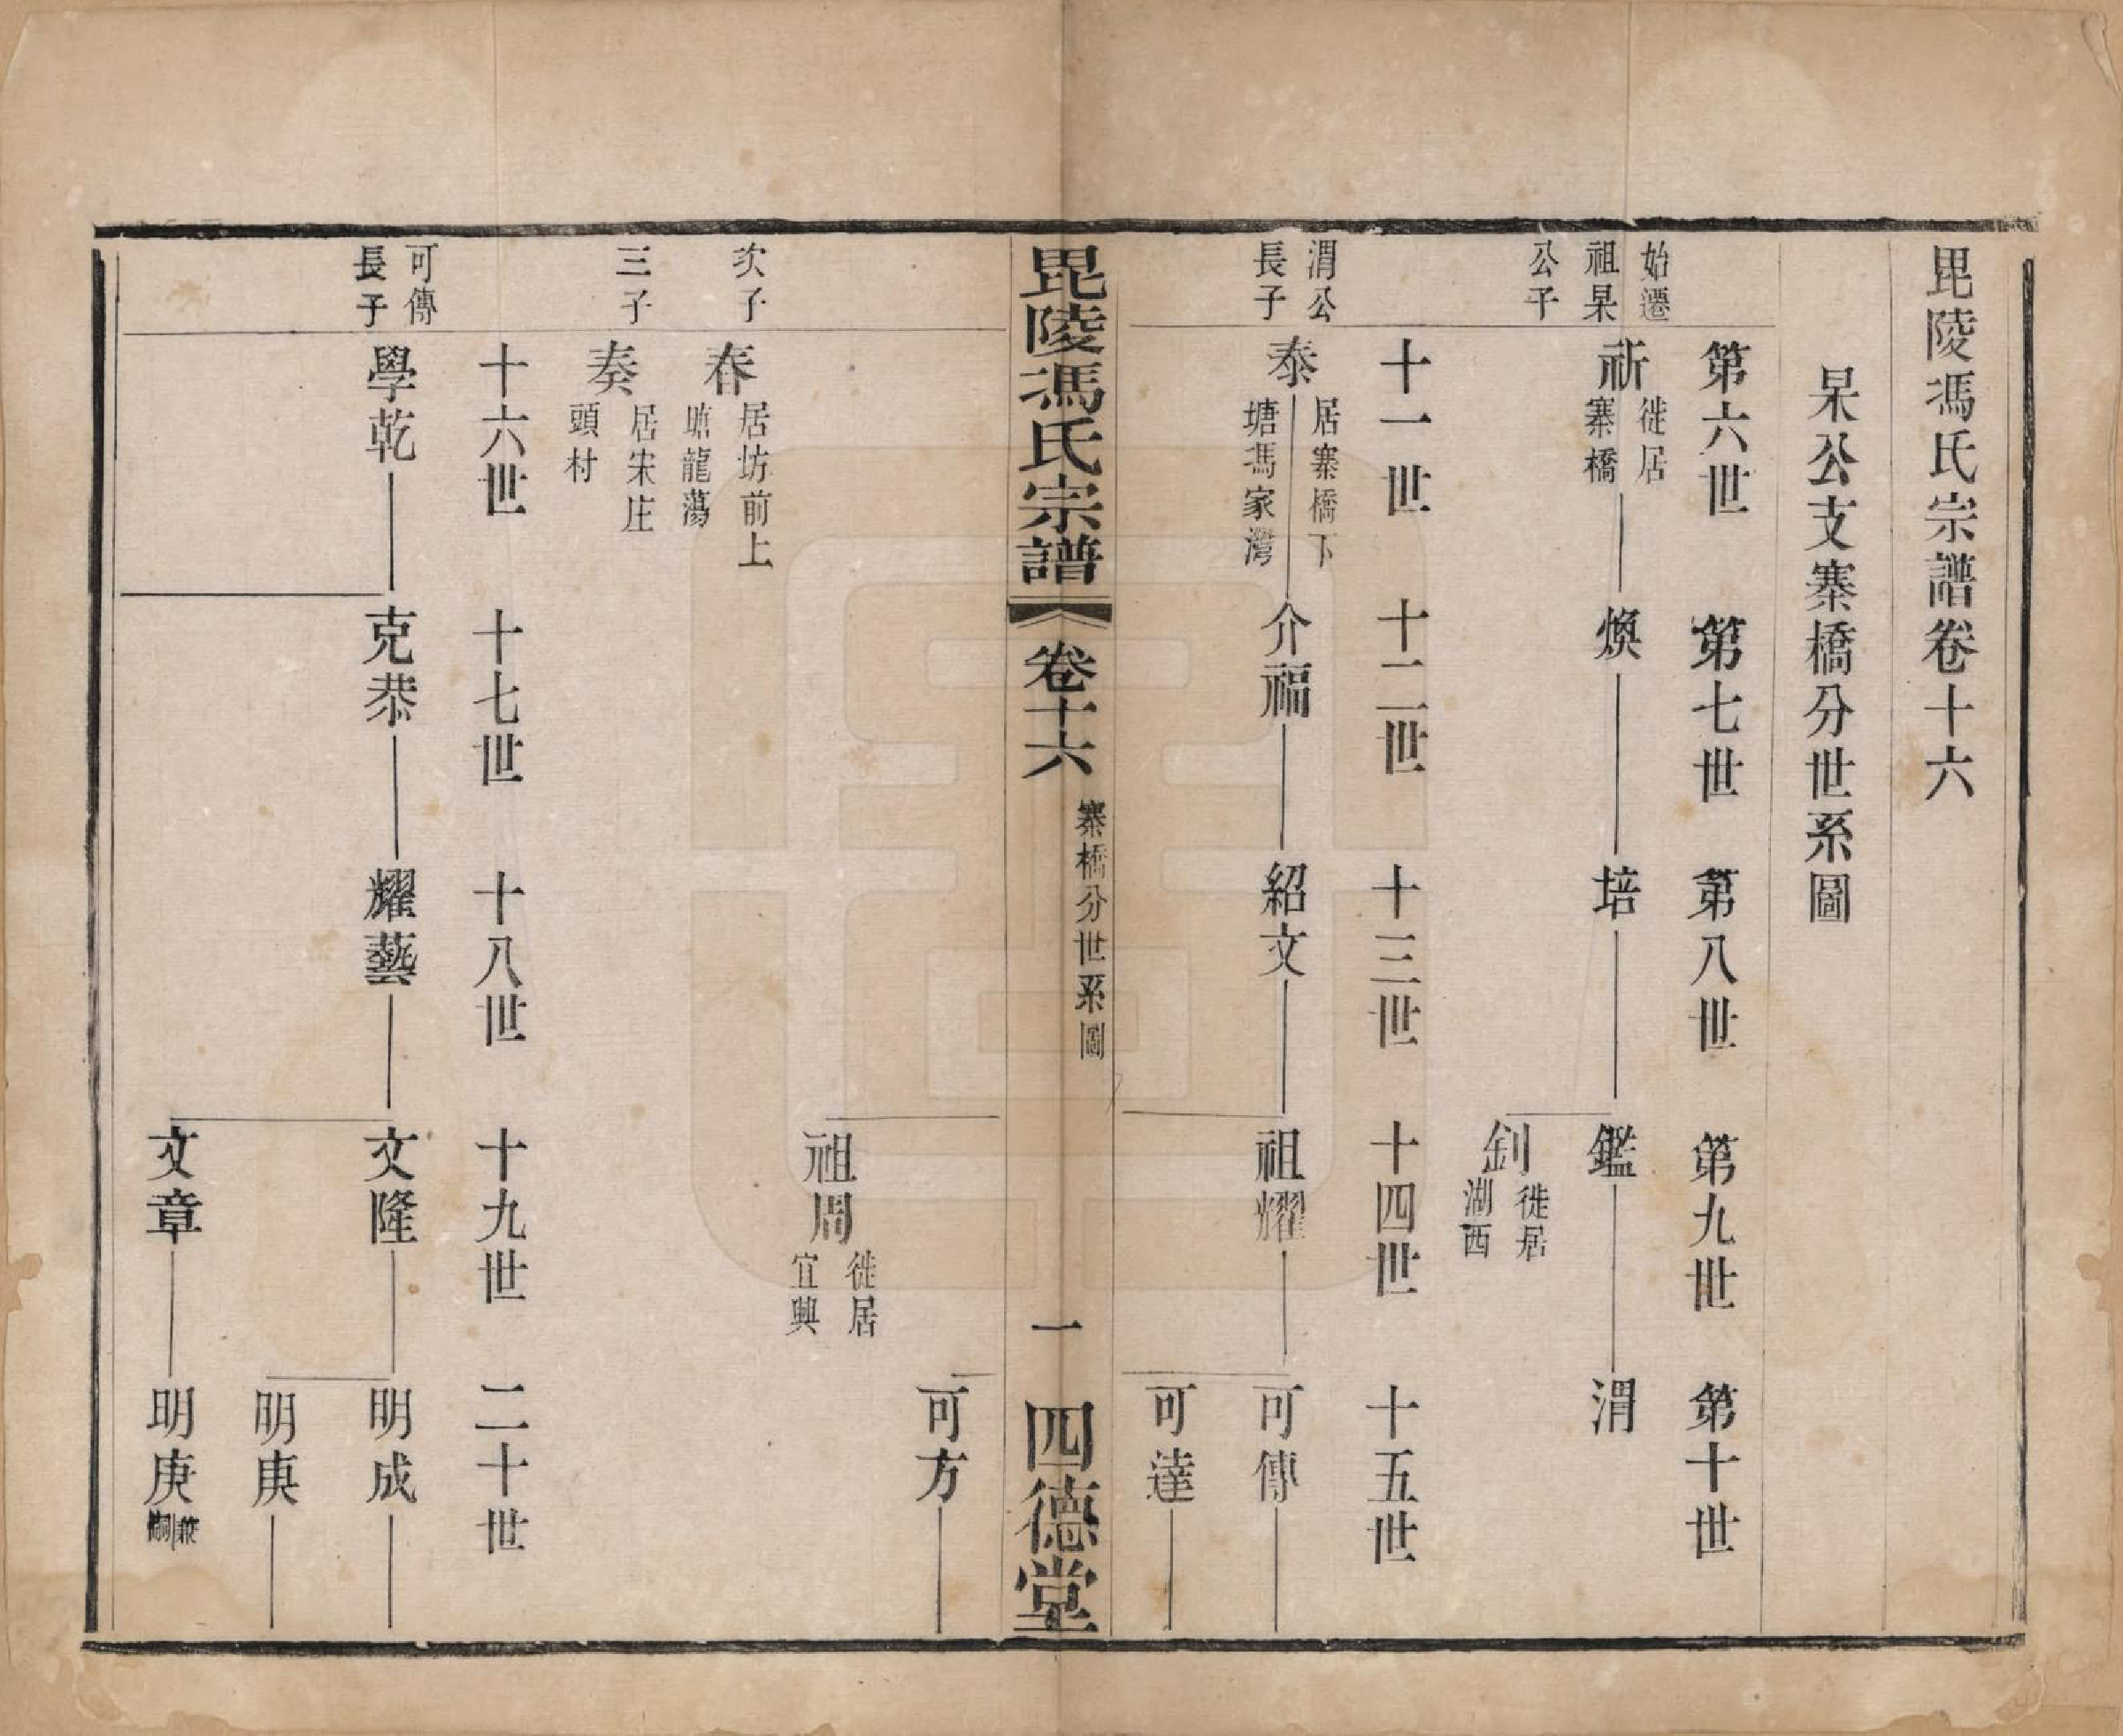 毘陵馮氏宗譜卷十六
杲公支寨橋分世系圖
第六世 第七世 第八世 第九世 第十世
始遷
祖杲
公子
祈 徙居寨橋 煥 培 鑑 渭
釗 徙居湖西
十一世 十二世 十三世 十四世 十五世
渭公
長子
泰 居寨橋下塘馮家灣 介福 紹文 祖耀 可傳
可達
毘陵馮氏宗譜 卷十六 寨橋分世系圖 一 四德堂
可方
祖周 徙居宜興
次子
春 居坊前上塘龍蕩
三子
奏 居宋庄頭村
十六世 十七世 十八世 十九世 二十世
可傳
長子
學乾 克恭 耀藝 文隆 明成
明庚
文章 明庚 兼嗣